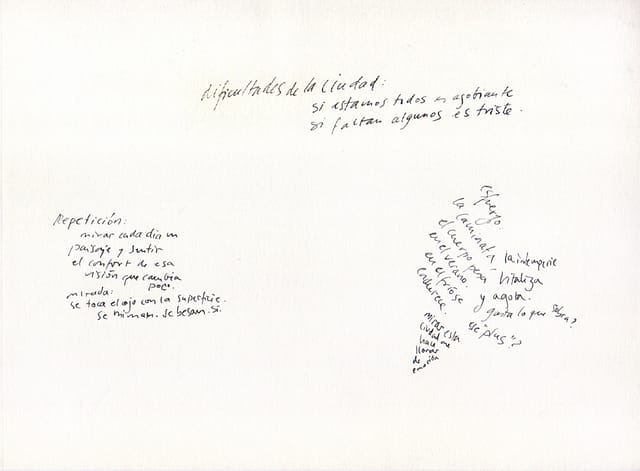 dificultades de la ciudad:
si estamos todos es agobiante
si faltan algunos es triste.
Repetición:
mirar cada día un
paisaje y sentir
el confort de esa
visión que cambia
poco.
mirada:
se toca el ojo con la superficie.
se miman. se besan. sí.
esfuerzo:
la caminata
el cuerpo pesa
en el verano.
en el frío se
endurece.
la intemperie
vitaliza
y agota.
gasta lo que sobra?
ese "plus"?
mirar esta
ciudad me
hace
llorar
de
emoción